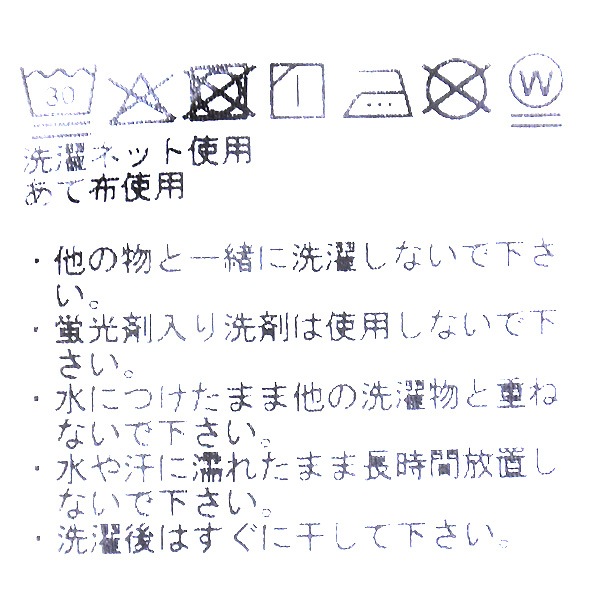 30
W
洗濯ネット使用
あて布使用
・他の物と一緒に洗濯しないで下さ
い。
・蛍光剤入り洗剤は使用しないで下
さい。
・水につけたまま他の洗濯物と重ね
ないで下さい。
・水や汗に濡れたまま長時間放置し
ないで下さい。
・洗濯後はすぐに干して下さい。